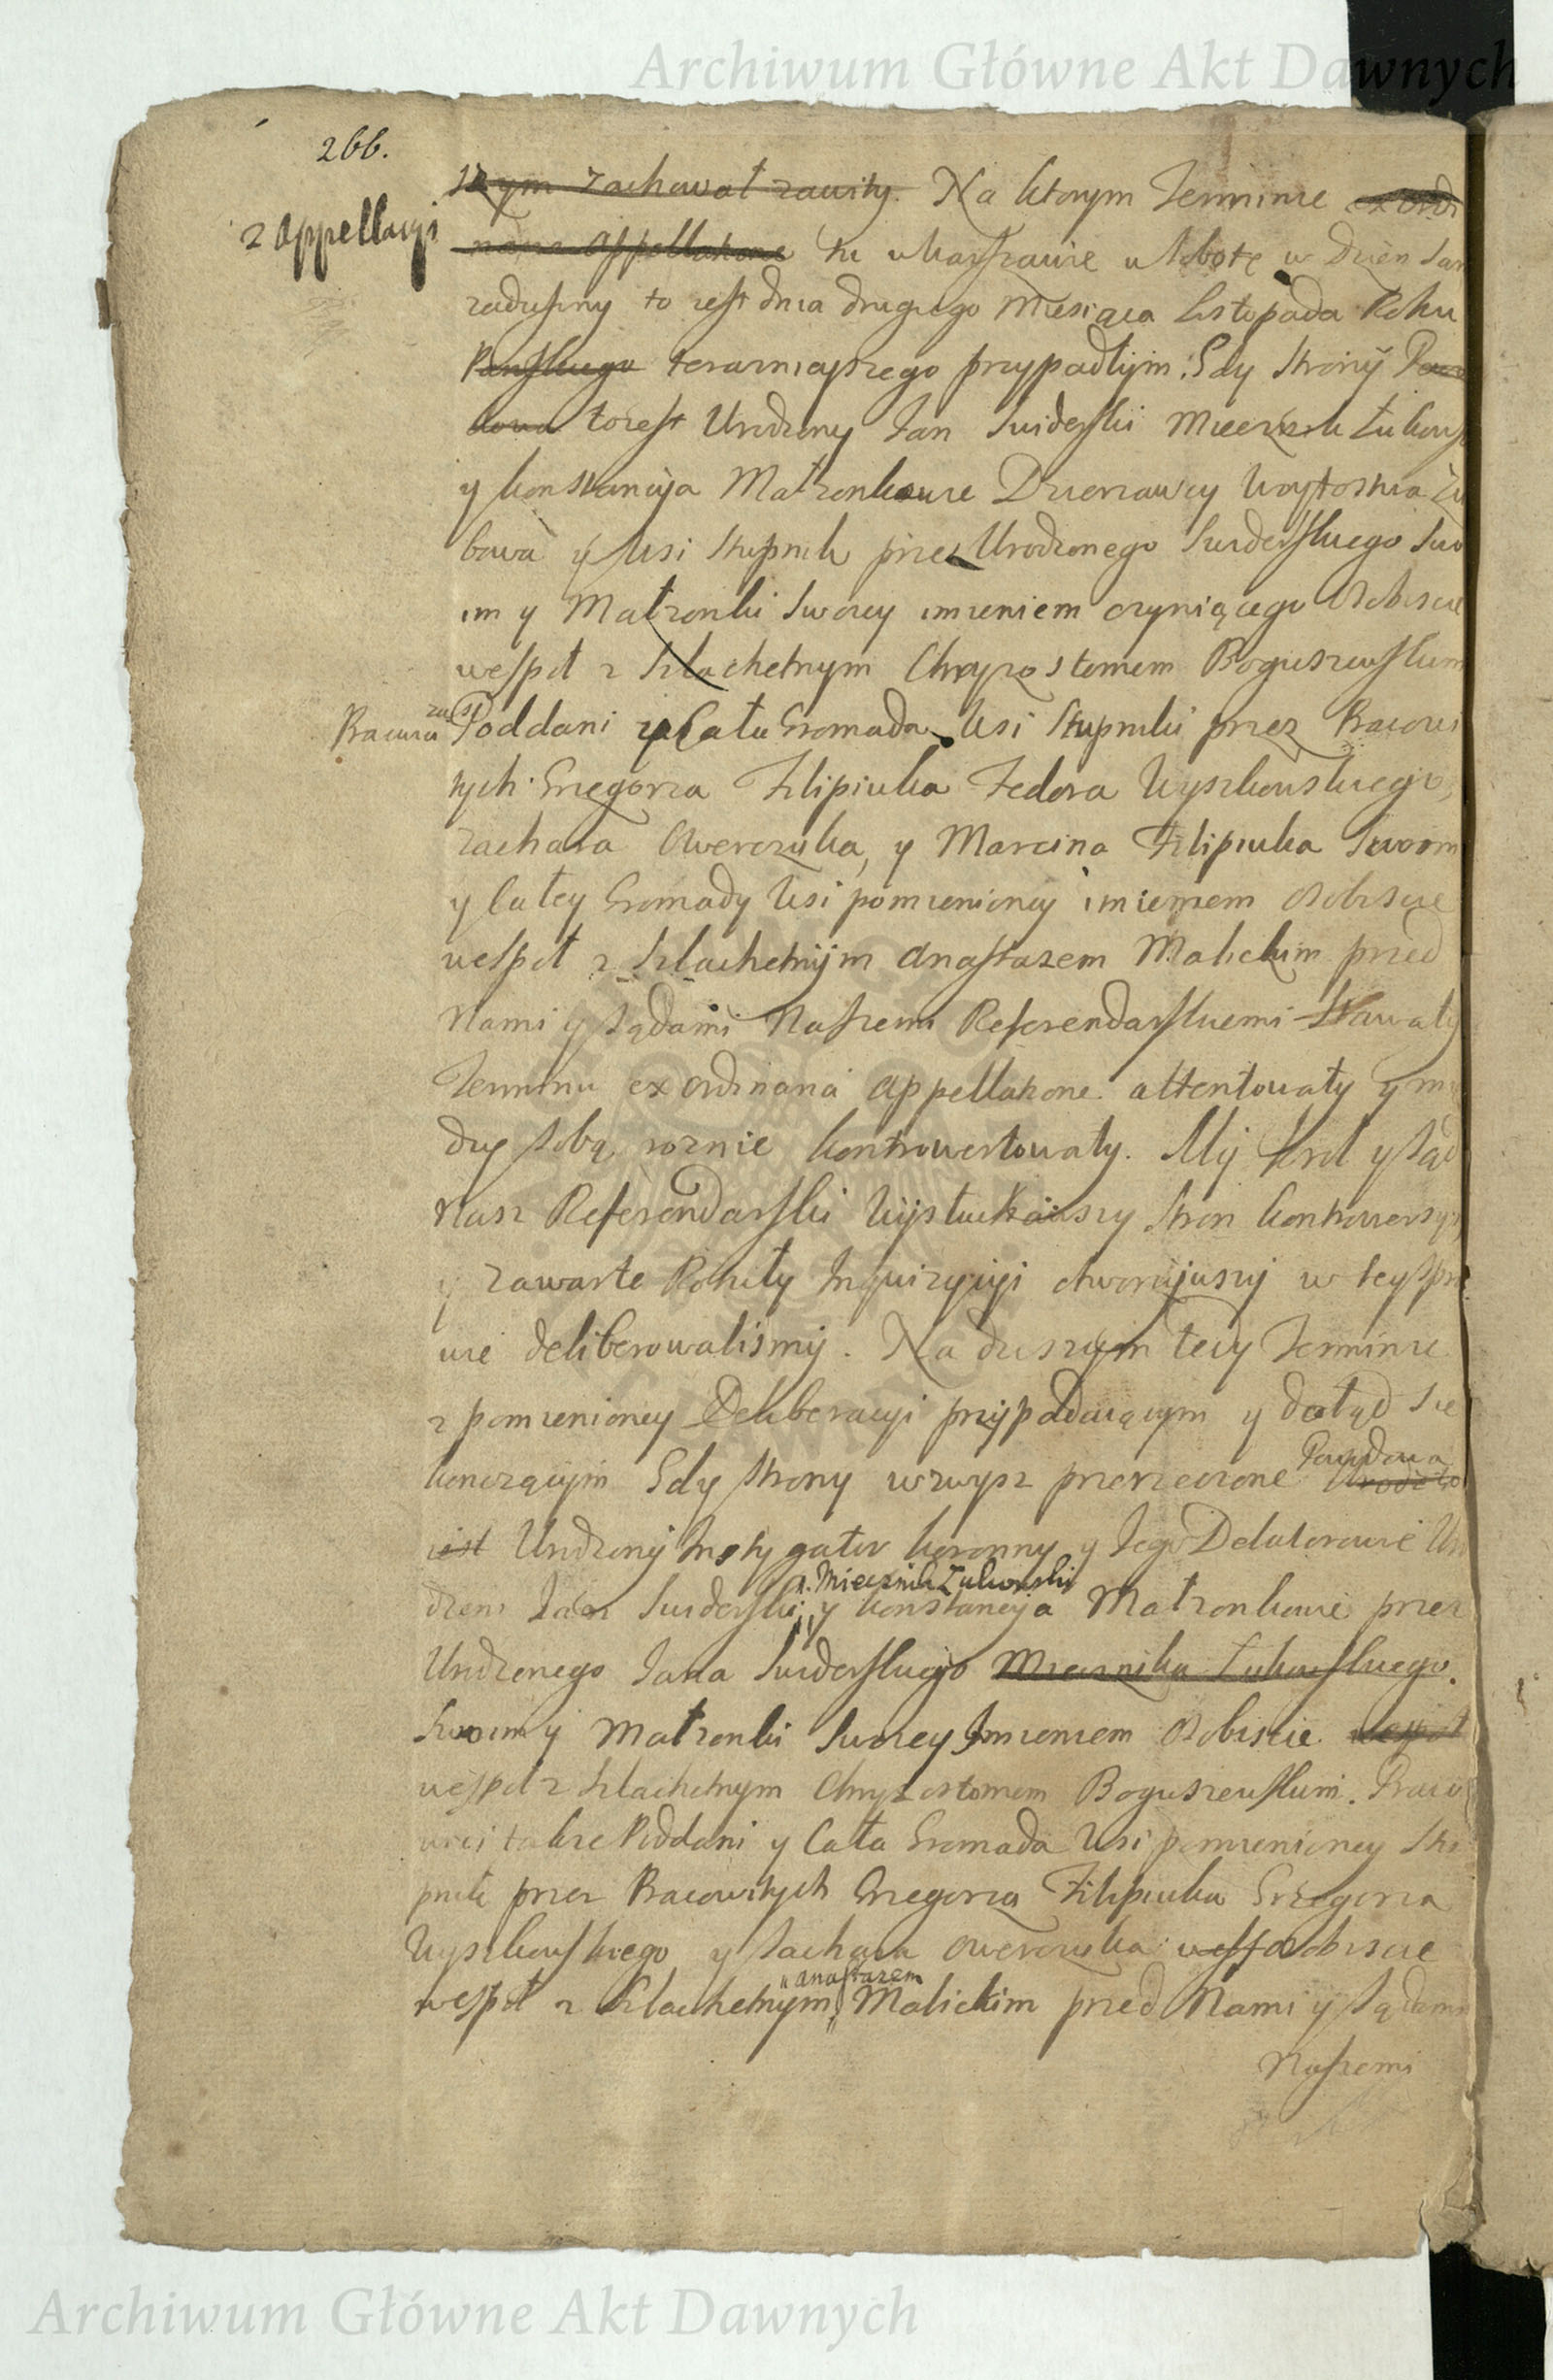 Archiwum Główne Akt Dawnych
266.
z Appellacyi
szym zachował zawity. Na ktorym Terminie ex ordi
naria Appellatione tu w Warszawie w Sobotę w Dzien
zaduszny to iest dnia drugiego Miesiąca Listopada Roku
Panskiego teraznieyszego przypadłym: Gdy Strony Powo
dowa to iest Urodzony Jan Swiderski Miecznik Łukowsk
y Konstancyja Małzonkowie Dzierzawcy Woytostwa
bowa y Wsi Stupnik przez Urodzonego Swiderskiego Swo
im y Małzonki Swoiey imieniem czyniącego Osobiscie
wespoł z Szlachetnym Chryzostomem Boguszewskim
Pracowi zas Poddani y Cała Gromada Wsi Stupniki przez Pracowi
tych Grzegorza Filipiuka Fedora Wyszkowskiego,
Zachara Owerczuka, y Marcina Filipiuka Swoim
y Całey Gromady Wsi pomienioney imieniem Osobiscie
wespoł z Szlachetnym Anastazem Malickim przed
Nami y Sądami Naszemi Referendarskiemi Stawały
Terminu ex ordinaria appellatione attentowały y mię
dzy Sobą roznie kontrowertowały. My Krol y Sąd
Nasz Referendarski Wysłuchawszy Stron kontrowersyi
y zawarte Rotuły Inquizycyi otworzywszy w tey Spra
wie deliberowalismy. Na dzisieyszym tedy Terminie
z pomienioney Deliberacyi przypadaiącym y dotąd Sie
konczącym Gdy Strony wzwysz przerzeczone Powodowa
iest Urodzony Instygator koronny y Jego Delatorowie Uro
dzeni Jan Swiderski, Miecznik Łukowski y Konstancyja Małzonkowie przez
Urodzonego Jana Swiderskiego Miecznika Łukowskiego.
Swoim y Małzonki Swoiey Imieniem Osobiscie wespoł
wespoł z Szlachetnym Chryzostomem Boguszewskim. Praco
wici także Poddani y Cała Gromada Wsi pomienioney Stu
pnik przez Pracowitych Grzegorza Filipiuka Grzegorza
Wyszkowskiego y Zachara Owerczuka Osobiscie
wespoł z Szlachetnym Anastazem Malickim przed Nami y Sądami
Naszemi
Archiwum Główne Akt Dawnych